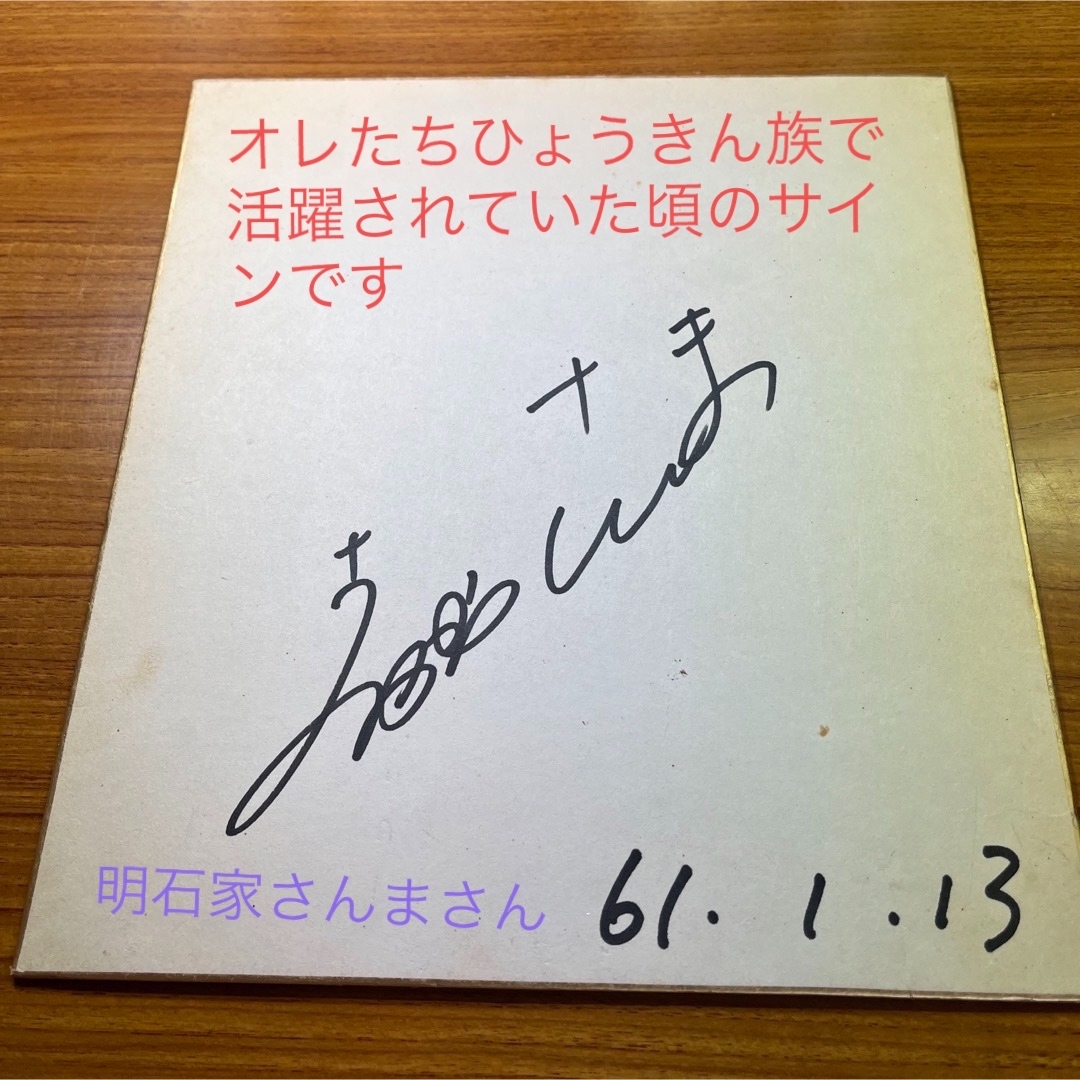 オレたちひょうきん族で
活躍されていた頃のサイ
ンです
さんま
明石家さんまさん
61.1.13